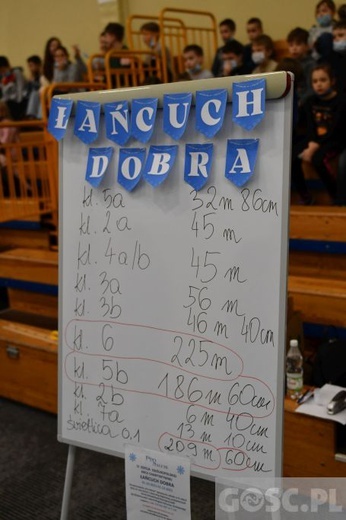 ŁAŃCUCH
DOBRA
kl. 5a 32m 86cm
kl. 2a 45m
kl. 4a/b 45m
kl. 3a 56m
kl. 3b 46m 40cm
kl. 6 225m
kl. 5b 186m 60cm
kl. 2b 6m 40cm
kl. 7a 13m 10cm
świetlica 0.1 209m 60cm
ŁAŃCUCH DOBRA
GOSC.PL